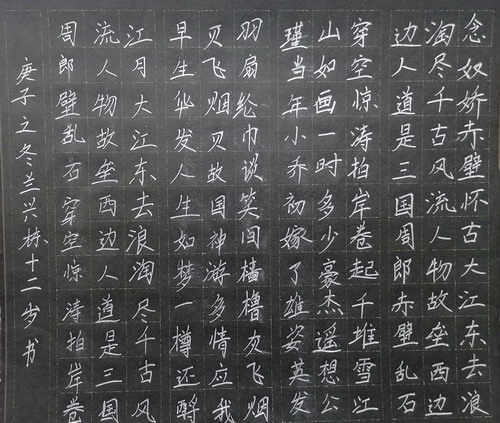 念奴娇赤壁怀古大江东去浪
淘尽千古风流人物故垒西边
边人道是三国周郎赤壁乱石
穿空惊涛拍岸卷起千堆雪江
山如画一时多少豪杰遥想公
瑾当年小乔初嫁了雄姿英发
羽扇纶巾谈笑间樯橹灰飞烟
贝飞烟贝故国神游多情应我
早生华发人生如梦一樽还酹
江月大江东去浪淘尽千古风
流人物故垒西边人道是三国
周郎壁乱石穿空惊涛拍岸卷
庚子立冬兰兴林十二岁书